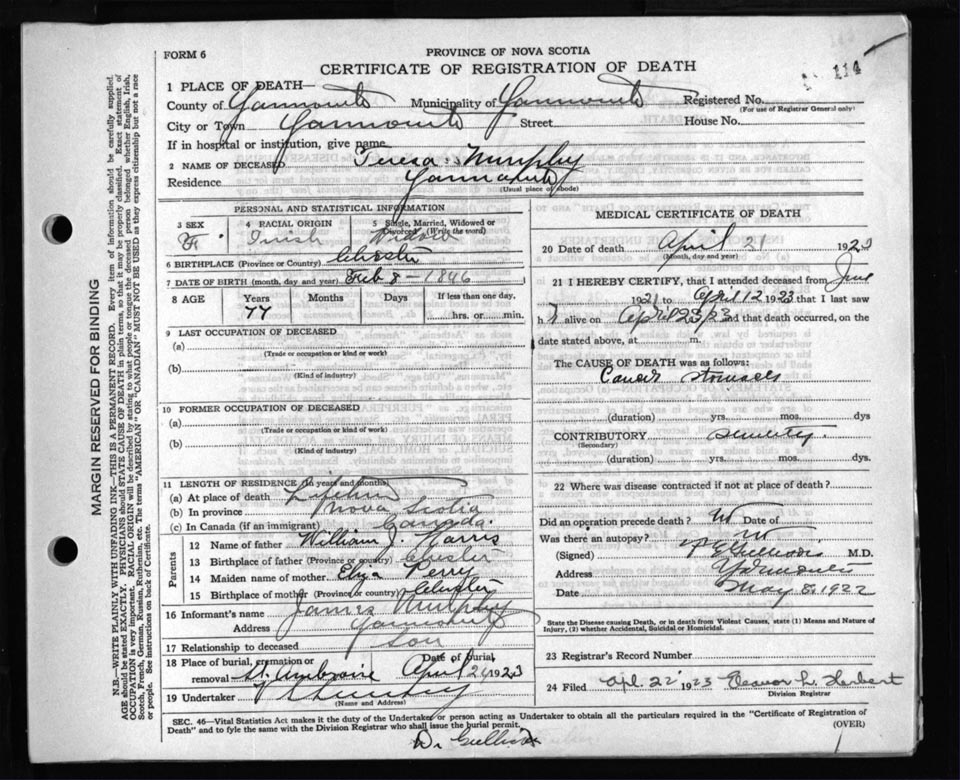 FORM 6
PROVINCE OF NOVA SCOTIA
CERTIFICATE OF REGISTRATION OF DEATH
114
1 PLACE OF DEATH—
County of Yarmouth Municipality of Yarmouth Registered No.
(For use of Registrar General only)
City or Town Yarmouth Street House No.
If in hospital or institution, give name
2 NAME OF DECEASED Teresa Murphy
Residence Yarmouth
(Usual place of abode)
PERSONAL AND STATISTICAL INFORMATION
3 SEX 4 RACIAL ORIGIN 5 Single, Married, Widowed or Divorced (Write the word)
F. Irish Widow
6 BIRTHPLACE (Province or Country) Chester
7 DATE OF BIRTH (month, day and year) Feb 8 - 1846
8 AGE Years Months Days If less than one day,
77 hrs. or min.
9 LAST OCCUPATION OF DECEASED
(a)
(Trade or occupation or kind or work)
(b)
(Kind of industry)
10 FORMER OCCUPATION OF DECEASED
(a)
(Trade or occupation or kind of work)
(b)
(Kind of industry)
11 LENGTH OF RESIDENCE (in years and months)
(a) At place of death Lifetime
(b) In province Nova Scotia
(c) In Canada (if an immigrant) Canada.
Parents
12 Name of father William J. Harris
13 Birthplace of father (Province or country) Chester
14 Maiden name of mother Eliza Perry
15 Birthplace of mother (Province or country) Chester
16 Informant's name James Murphy
Address Yarmouth
17 Relationship to deceased Son
18 Place of burial, cremation or removal St. Ambroise Date of burial April 24 1923
19 Undertaker
(Name and Address)
MEDICAL CERTIFICATE OF DEATH
20 Date of death April 21 1923
(Month, day and year)
21 I HEREBY CERTIFY, that I attended deceased from June
1921 to April 12 1923 that I last saw
h alive on April 23 and that death occurred, on the
date stated above, at m.
The CAUSE OF DEATH was as follows:
Cancer Stomach
(duration) yrs. mos. dys
CONTRIBUTORY senility.
(Secondary)
(duration) yrs. mos. dys.
22 Where was disease contracted if not at place of death?
Did an operation precede death? No Date of
Was there an autopsy? No
(Signed) M.D.
Address Yarmouth
Date May 8, 1922
State the Disease causing Death, or in death from Violent Causes, state (1) Means and Nature of Injury, (2) whether Accidental, Suicidal or Homicidal.
23 Registrar's Record Number
24 Filed Apl. 22' 1923 Eleanor L. Herbert
Division Registrar
SEC. 46—Vital Statistics Act makes it the duty of the Undertaker or person acting as Undertaker to obtain all the particulars required in the "Certificate of Registration of
Death" and to fyle the same with the Division Registrar who shall issue the burial permit.
(OVER)
MARGIN RESERVED FOR BINDING
N.B.—WRITE PLAINLY WITH UNFADING INK—THIS IS A PERMANENT RECORD. Every item of information should be carefully supplied.
AGE should be stated EXACTLY. PHYSICIANS should STATE CAUSE OF DEATH in plain terms, so that it may be properly classified. Exact statement of
OCCUPATION is very important. RACIAL ORIGIN will be described by stating to what people or tongue the deceased person belonged whether English, Irish,
Scotch, French, German, Russian, Ruthenian, etc. The terms "AMERICAN" OR "CANADIAN" MUST NOT BE USED as they express citizenship but not a race
or people. See instructions on back of Certificate.